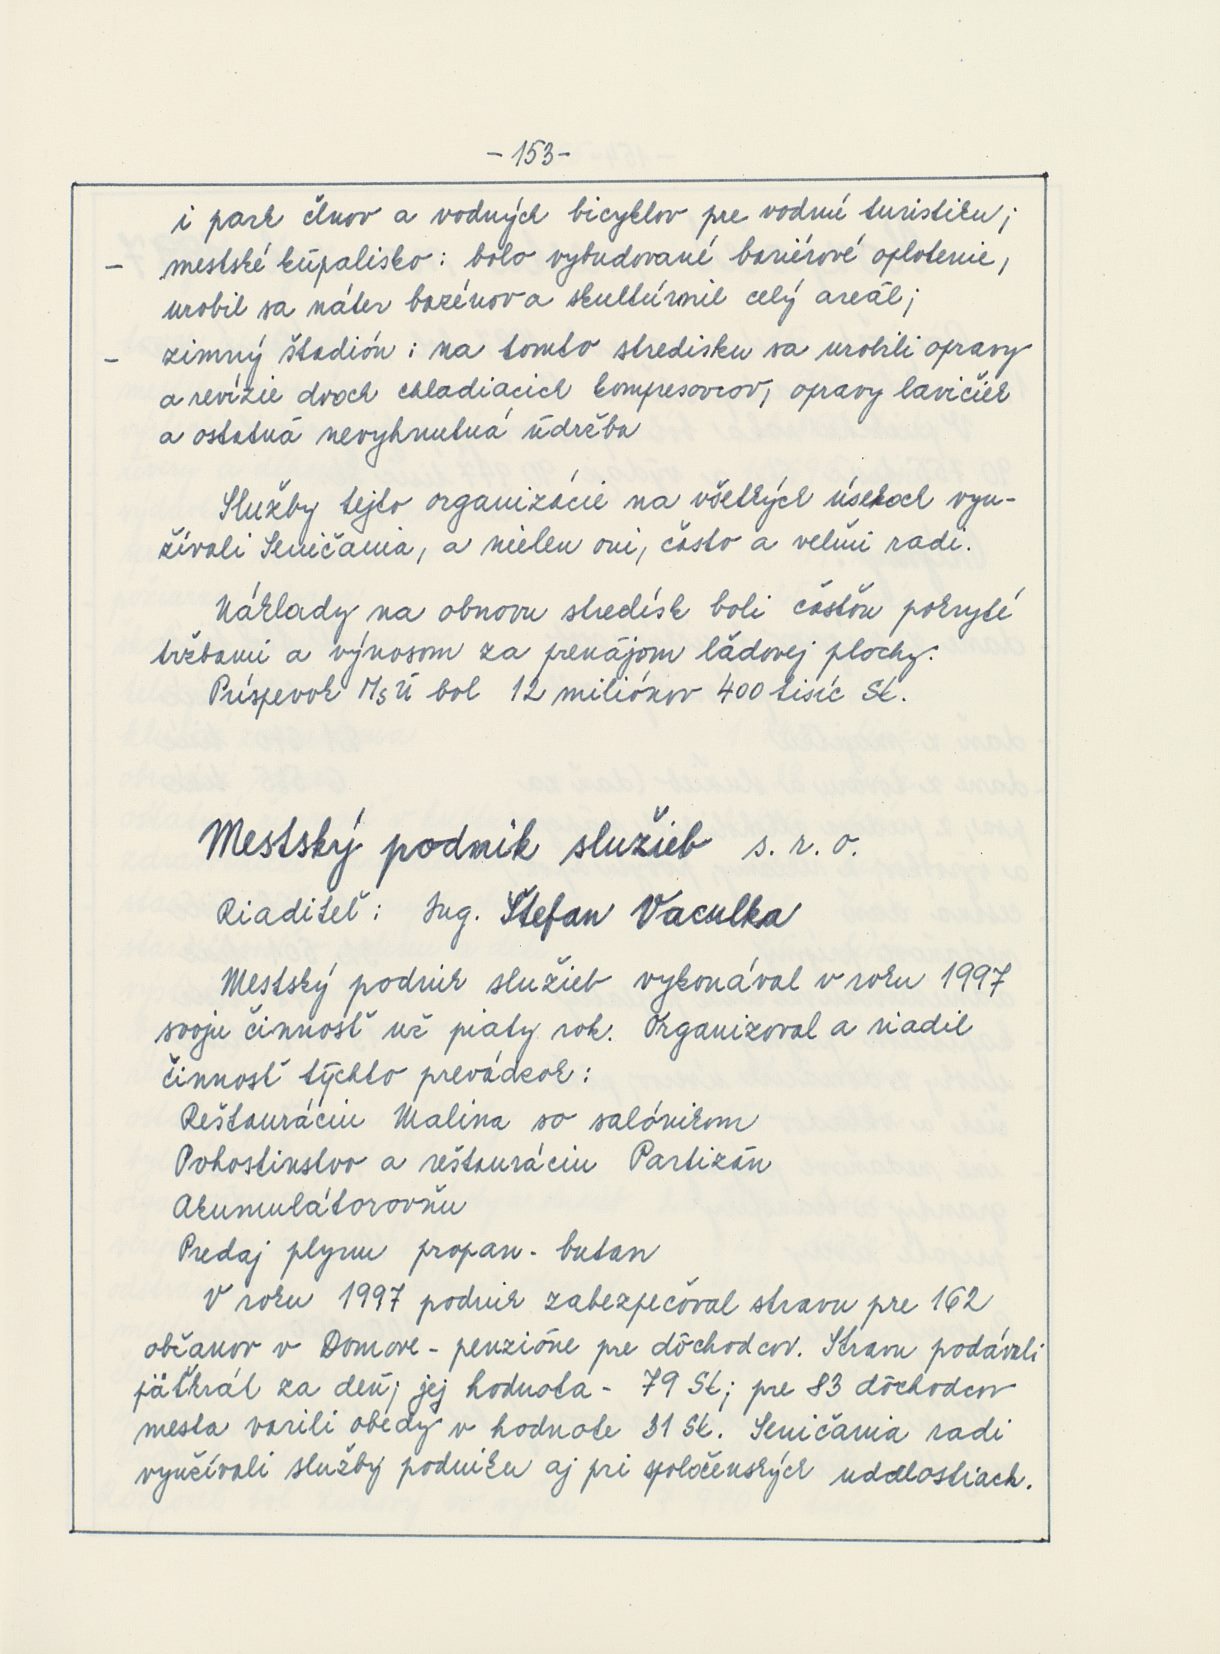 -153-
i park člnov a vodných bicyklov pre vodnú turistiku;
- mestské kúpalisko: bolo vybudované bariérové oplotenie,
urobil sa náter bazénov a skultúrnil celý areál;
- zimný štadión: na tomto stredisku sa urobili opravy
a revízie dvoch chladiacich kompresorov, opravy lavičiek
a ostatná nevyhnutná údržba
Služby tejto organizácie na všetkých úsekoch vyu-
žívali Seničania, a nielen oni, často a veľmi radi.
Náklady na obnovu stredísk boli čosťou pokryté
tržbami a výnosom za prenájom ľadovej plochy.
Príspevok MsÚ bol 12 miliónov 400 tisíc Sk.
Mestský podnik služieb s. r. o.
Riaditeľ: Ing. Štefan Vaculka
Mestský podnik služieb vykonával v roku 1997
svoju činnosť už piaty rok. Organizoval a riadil
činnosť týchto prevádzok:
Reštauráciu Malina so salónikom
Pohostinstvo a reštauráciu Partizán
Akumulátorovňu
Predaj plynu propan - butan
V roku 1997 podnik zabezpečoval stravu pre 162
občanov v Domove - penzióne pre dôchodcov. Stravu podávali
päťkrát za deň; jej hodnota - 79 Sk; pre 83 dôchodcov
mesta varili obedy v hodnote 31 Sk. Seničania radi
využívali služby podniku aj pri spoločenských udalostiach.